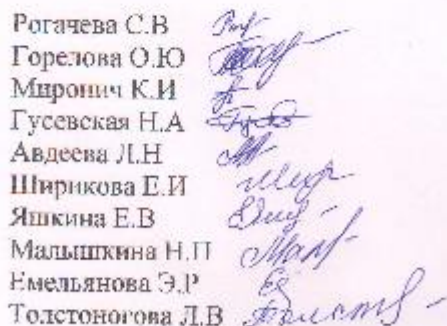 Рогачева С.В
Горелова О.Ю
Миронич К.И
Гусевская Н.А
Авдеева Л.Н
Ширикова Е.И
Яшкина Е.В
Малышкина Н.П
Емельянова Э.Р
Толстоногова Л.В